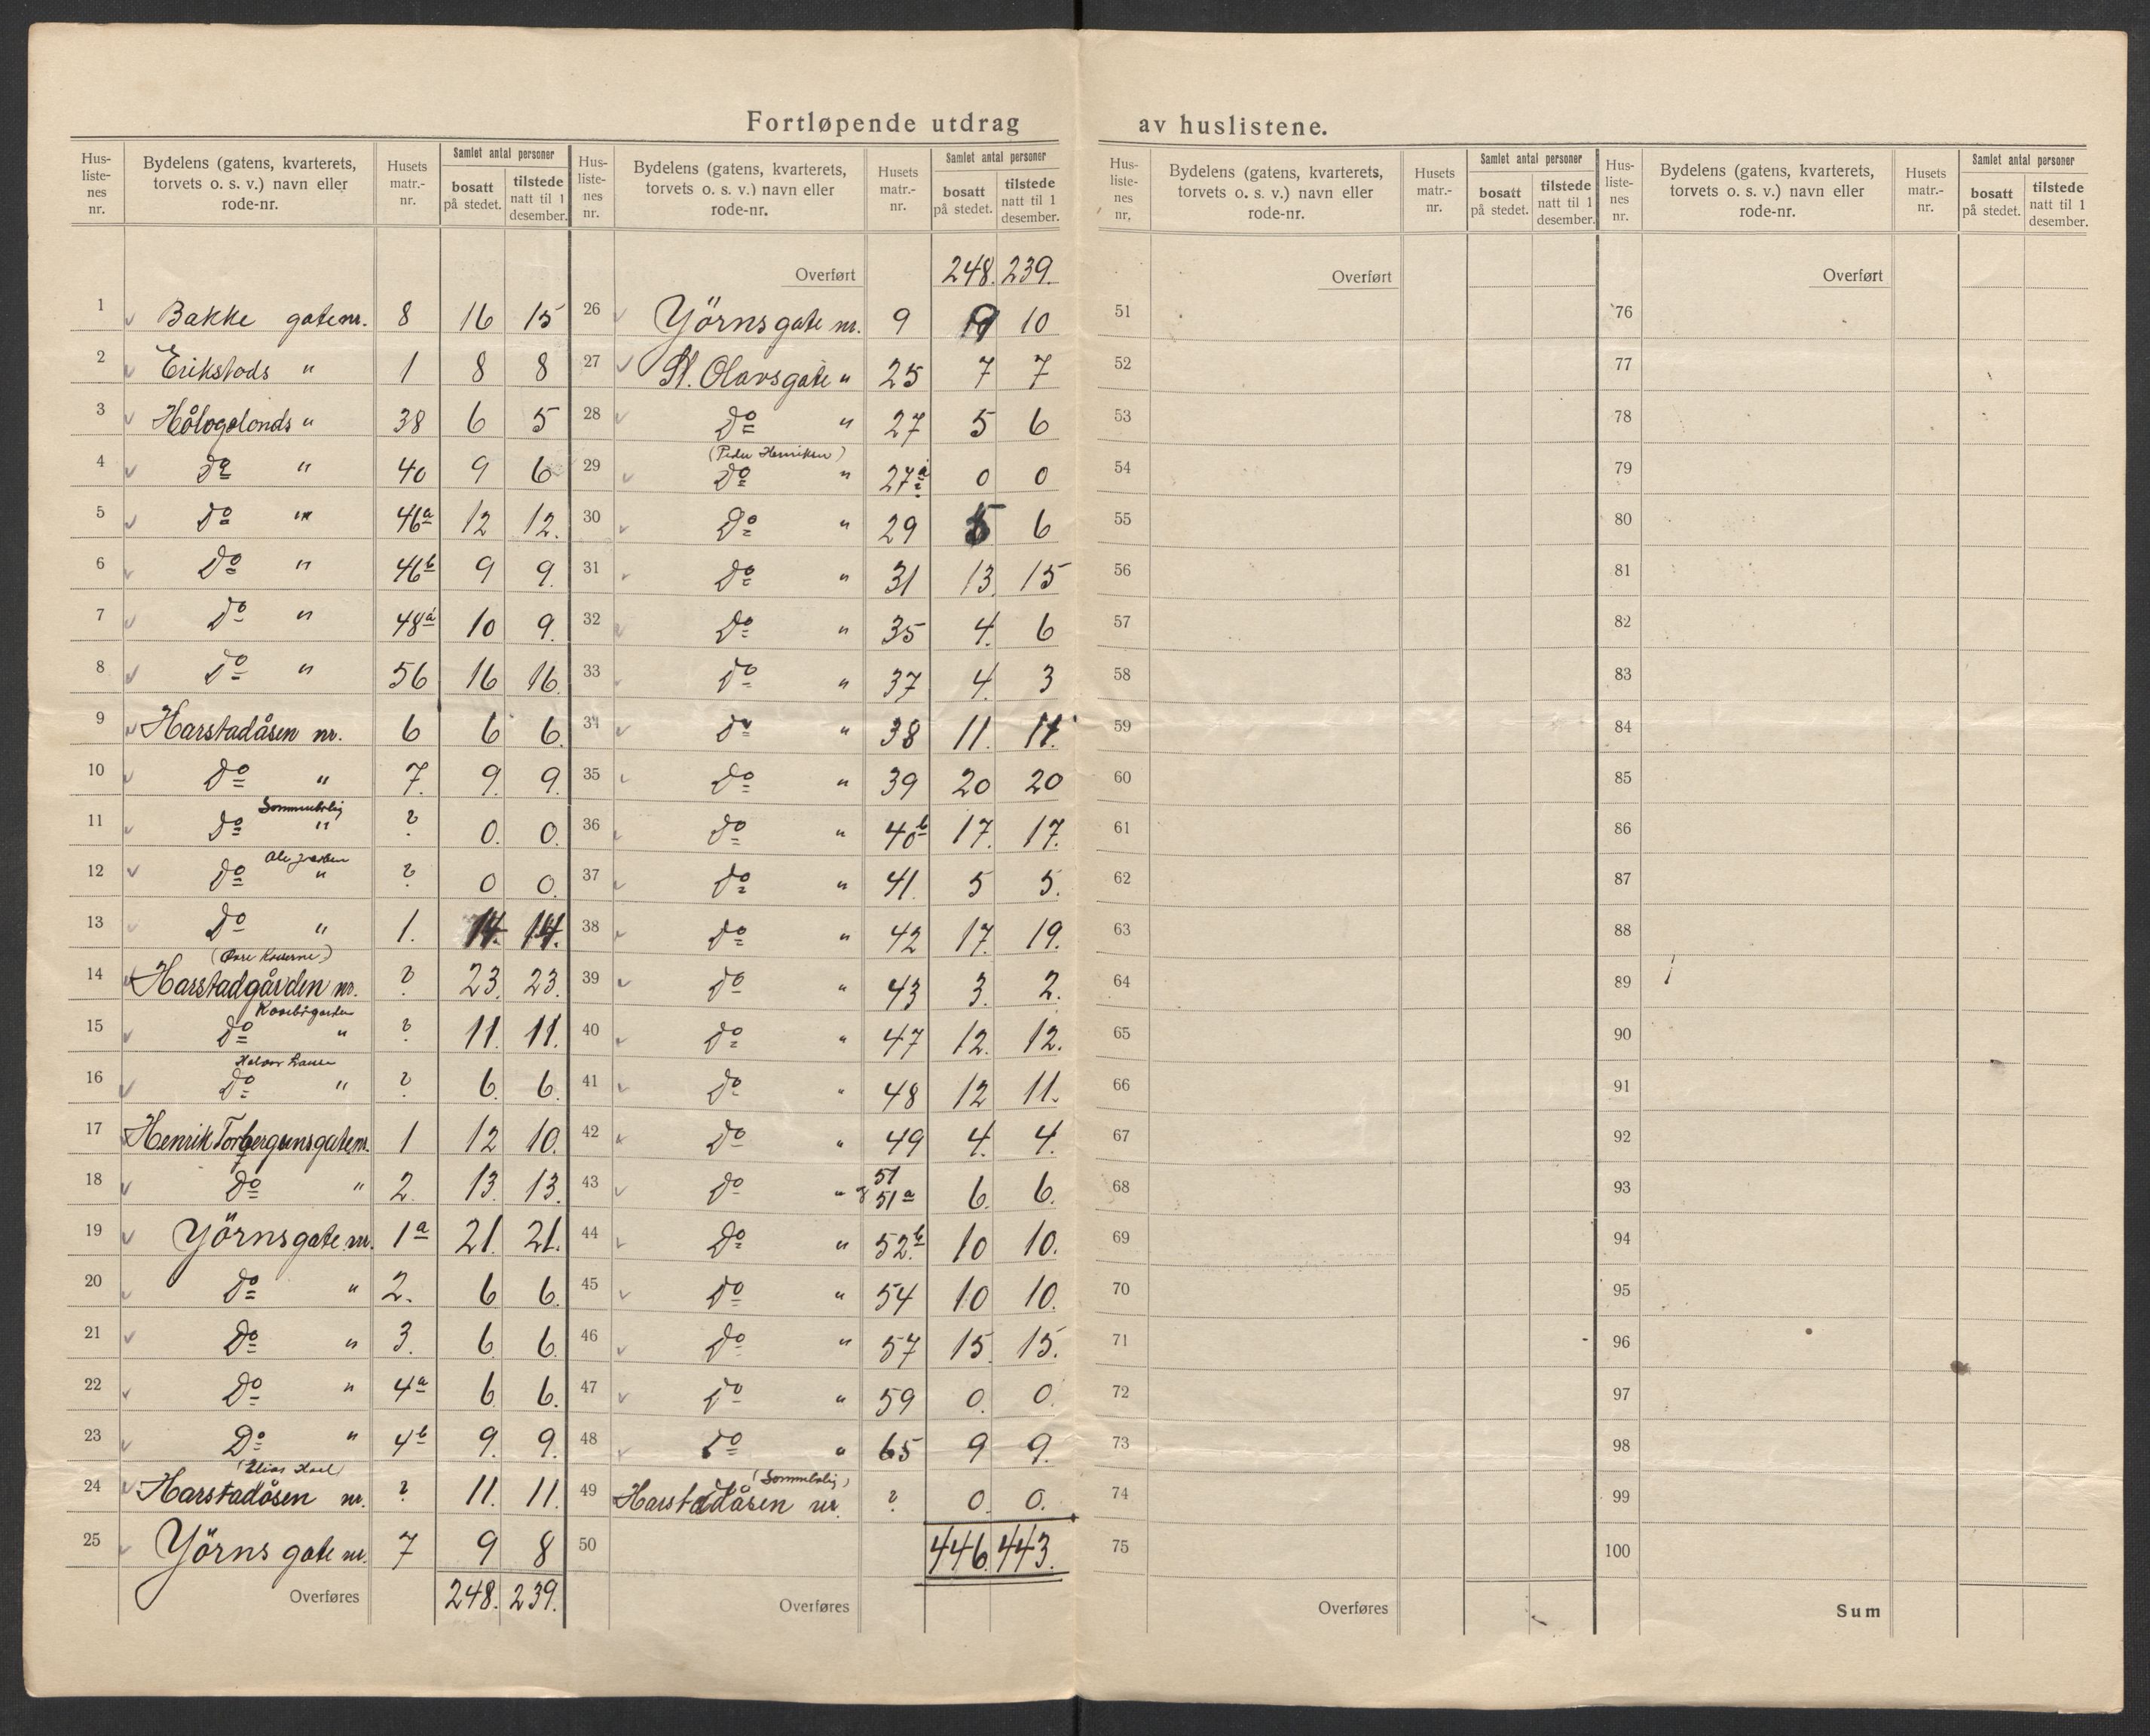 Fortløpende utdrag av huslistene.
Hus-listenes nr. | Bydelens (gatens, kvarterets, torvets o. s. v.) navn eller rode-nr. | Husets matr.-nr. | Samlet antal personer bosatt på stedet. | tilstede natt til 1 desember.
1 Bakke gatenr. 8 16 15
2 Erikstads " 1 8 8
3 Hålogalands " 38 6 5
4 do " 40 9 6
5 do " 46a 12 12.
6 do " 46b 9 9.
7 do " 48a 10 9.
8 do " 56 16 16.
9 Harstadåsen nr. 6 6 6.
10 do " 7. 9. 9.
Sommerbolig
11 do " ? 0. 0.
12 do " ? 0 0.
13 do " 1. 14. 14.
14 Harstadgården nr. ? 23. 23.
15 do " ? 11. 11.
16 do " ? 6. 6.
17 Henrik Torbergsensgatenr. 1 12 10.
18 do " 2. 13. 13.
19 Yörnsgate nr. 1a 21. 21.
20 do " 2. 6 6.
21 do " 3. 6 6.
22 do " 4a 6 6.
23 do " 4b 9. 9.
24 Harstadåsen nr. ? 11. 11.
25 Yörns gate nr. 7 9 8
Overføres 248. 239.
Hus-listenes nr. | Bydelens (gatens, kvarterets, torvets o. s. v.) navn eller rode-nr. | Husets matr.-nr. | Samlet antal personer bosatt på stedet. | tilstede natt til 1 desember.
Overført 248. 239.
26 Yörnsgate nr. 9 9 10
27 St. Olavsgate " 25 7 7
28 do " 27 5 6
(Peder Henriksen)
29 do " 27a 0 0
30 do " 29 5 6
31 do " 31 13. 15
32 do " 35 4. 6
33 do " 37 4. 3
34 do " 38 11. 11.
35 do " 39 20 20
36 do " 40b 17. 17.
37 do " 41. 5 5.
38 do " 42 17. 19.
39 do " 43 3. 2.
40 do " 47 12. 12.
41 do " 48 12 11.
42 do " 49 4. 4.
43 do " 51 & 51a 6. 6.
44 do " 52b 10 10.
45 do " 54 10 10.
46 do " 57 15. 15.
47 do " 59 0. 0.
48 do " 65 9 9.
(Sommerbolig)
49 Harstadåsen nr. ? 0. 0.
50 446. 443.
Overføres
Hus-listenes nr. | Bydelens (gatens, kvarterets, torvets o. s. v.) navn eller rode-nr. | Husets matr.-nr. | Samlet antal personer bosatt på stedet. | tilstede natt til 1 desember.
Overført
51
52
53
54
55
56
57
58
59
60
61
62
63
64
65
66
67
68
69
70
71
72
73
74
75
Overføres
Hus-listenes nr. | Bydelens (gatens, kvarterets, torvets o. s. v.) navn eller rode-nr. | Husets matr.-nr. | Samlet antal personer bosatt på stedet. | tilstede natt til 1 desember.
Overført
76
77
78
79
80
81
82
83
84
85
86
87
88
89
90
91
92
93
94
95
96
97
98
99
100
Sum